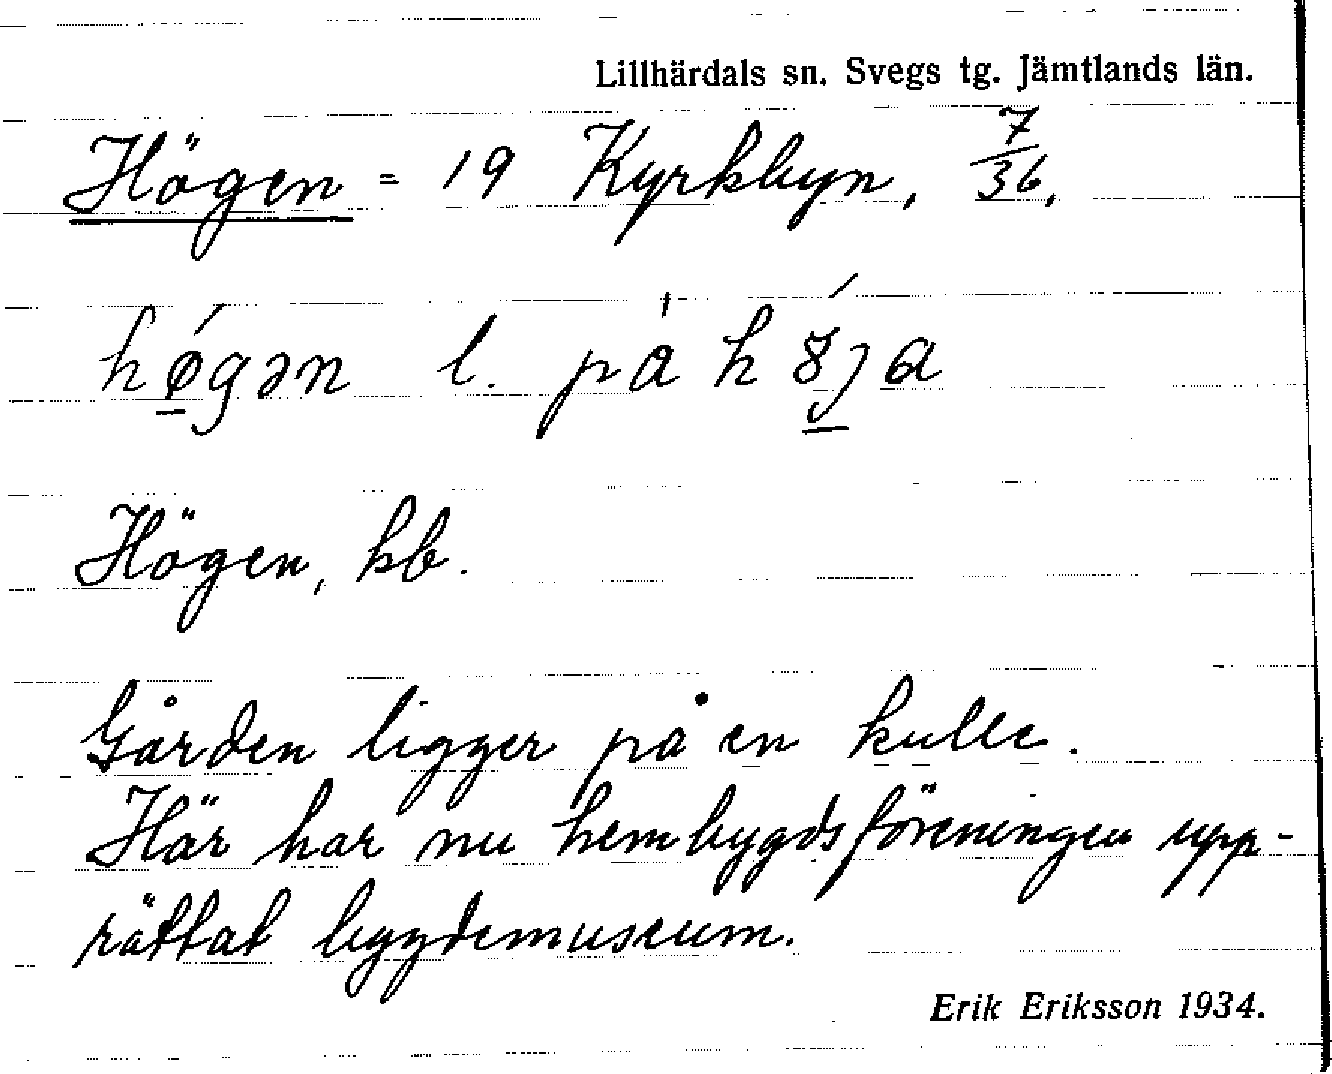 Lillhärdals sn. Svegs tg. Jämtlands län.
Högen = 19 Kyrkbyn, 7/36.
hǿ̱gən l. på
Högen, kb.
Gården ligger på en kulle.
Här har nu hembygdsföreningen upp-
rättat bygdemuseum.
Erik Eriksson 1934.